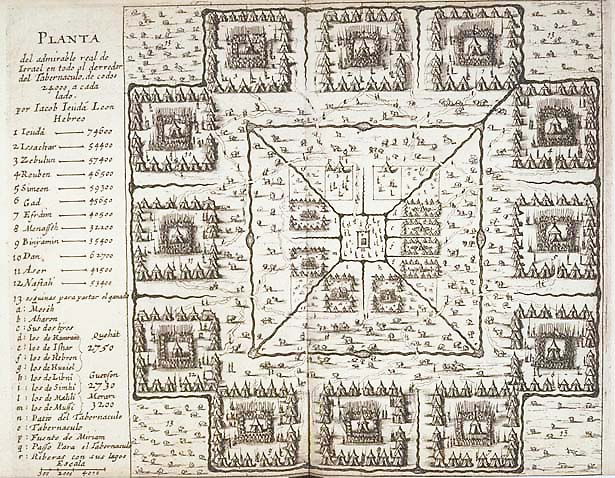 PLANTA
del admirable real de
Israel en todo al derredor
del Tabernaculo, de codos
24000, a cada
lado.
por Iacob Ieudá Leon
Hebreo
1 Ieudá 74600
2 Issachar 54400
3 Zebulun 57400
4 Reuben 46500
5 Simeon 59300
6 Gad 45650
7 Efraim 40500
8 Menasseh 32200
9 Binyamin 35400
10 Dan 62700
11 Aser 41500
12 Naftali 53400
13 esquinas para pastar el ganado
a: Moseh
b: Aharon
c: Sus dos hijos
d: los de Hamram Quehat
e: los de Ishar 2750
f: los de Hebron
g: los de Huziel
h: los de Libni Guerson
i: los de Simhi 2730
l: los de Mahli Merari
m: los de Musi 3200
n: Patio del Tabernaculo
o: Tabernaculo
p: Fuente de Miriam
q: Passo Para el Tabernaculo
r: Riberas con sus lagos
Escala